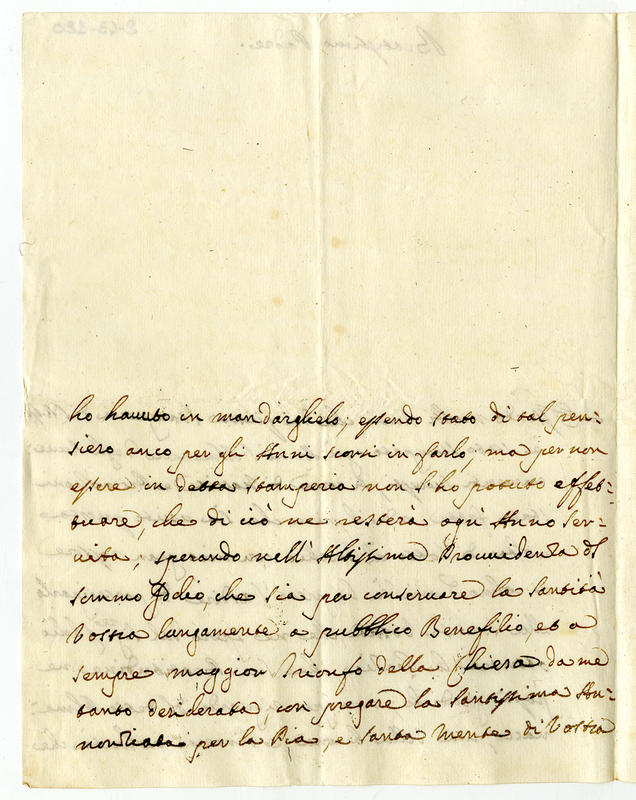 2-43-320
Beatissimo Padre.
ho hauuto in mandarglielo; essendo stato di tal pen=
siero anco per gli Anni scorsi in farlo, ma per non
essere in detta stamperia non l'ho potuto effet=
tuare, che di ciò ne resterà ogni Anno ser=
uita, sperando nell'Altissima Prouuidenza di
sommo Iddio, che sia per conseruare la Santità
Vostra lungamente a pubblico Benefizio, et a
sempre maggior Trionfo della Chiesa da me
tanto desiderata, con pregare la Santissima An=
nonziata per la Pia, e Santa Mente di Vostra